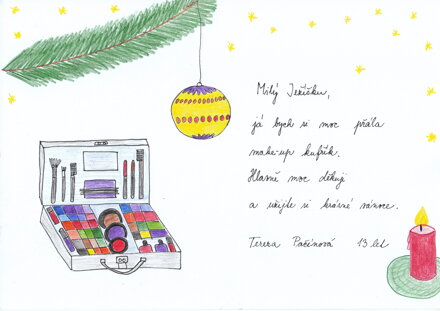 Milý Ježíšku,
já bych si moc přála
make-up kufřík.
Hlavně moc děkuji
a užijte si krásné vánoce.
Tereza Pačínová 13 let